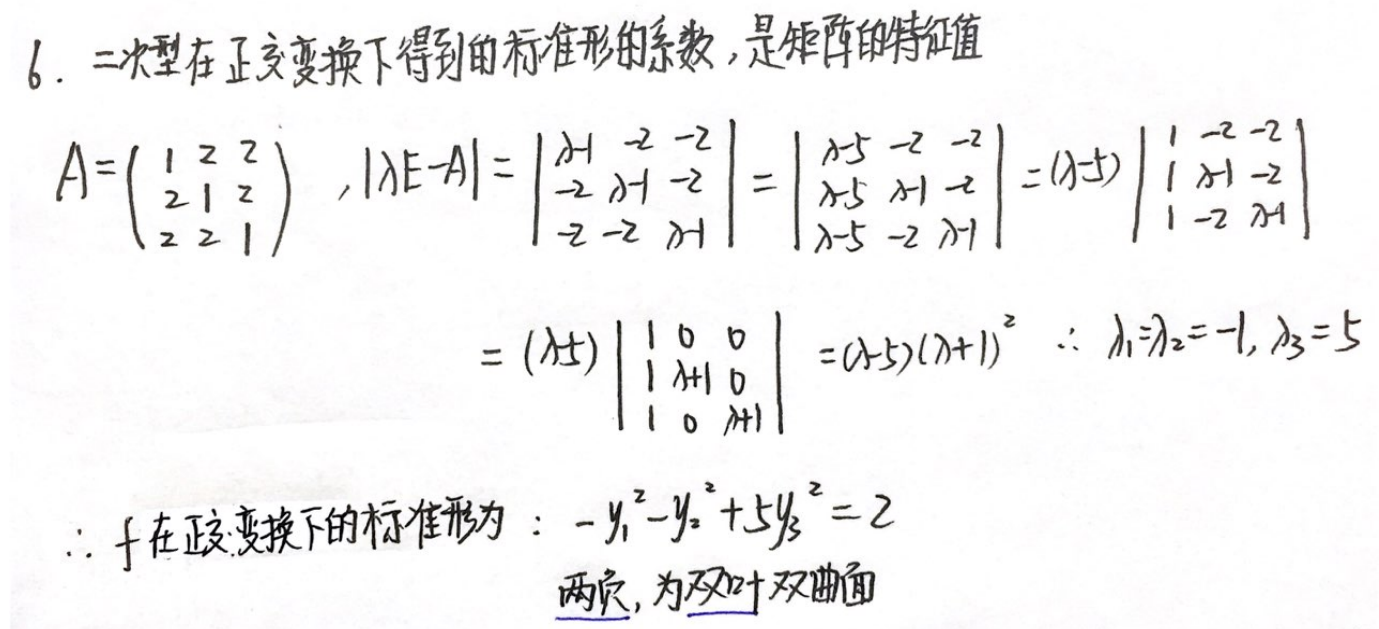 6. 二次型在正交变换下得到的标准形的系数,是矩阵的特征值
A=(1 2 2; 2 1 2; 2 2 1) , |λE-A| = |λ-1 -2 -2; -2 λ-1 -2; -2 -2 λ-1| = |λ-5 -2 -2; λ-5 λ-1 -2; λ-5 -2 λ-1| = (λ-5) |1 -2 -2; 1 λ-1 -2; 1 -2 λ-1|
= (λ-5) |1 0 0; 1 λ+1 0; 1 0 λ+1| = (λ-5)(λ+1)² ∴ λ₁=λ₂=-1, λ₃=5
∴ f在正交变换下的标准形为: -y₁²-y₂²+5y₃²=2
两负,为双叶双曲面